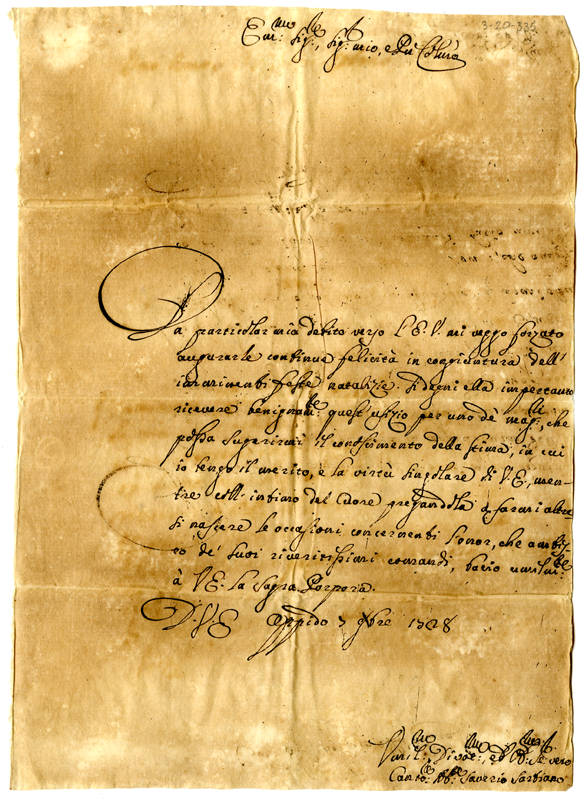 3-20-335
Em:mo Sig:re, Sig:r mio, e Pñ Col:mo
Da particolar mio debito verso l'E.V. mi veggo forzato
augurarle continue felicità in congiuntura dell'
imminenti feste natalizie. Si degni ella impertanto
ricevere benignam:te quest'ufizio per uno de' mag:ri, che
possa suggerirmi il conoscimento della stima, in cui
io tengo il merito, e la virtù singolare di V.E., men-
tre coll'intimo del Cuore pregandola a farmi altre
si nascere le occasioni concernenti l'onor, che ambis-
co de' suoi riveritissimi comandi, bacio umilm:te
à V.E. la Sagra Porpora.
D. V. E. Oppido 7 Xbre 1728
Umil:mo Div:mo, ed Obb:mo Se vero
Canto:re Saverio